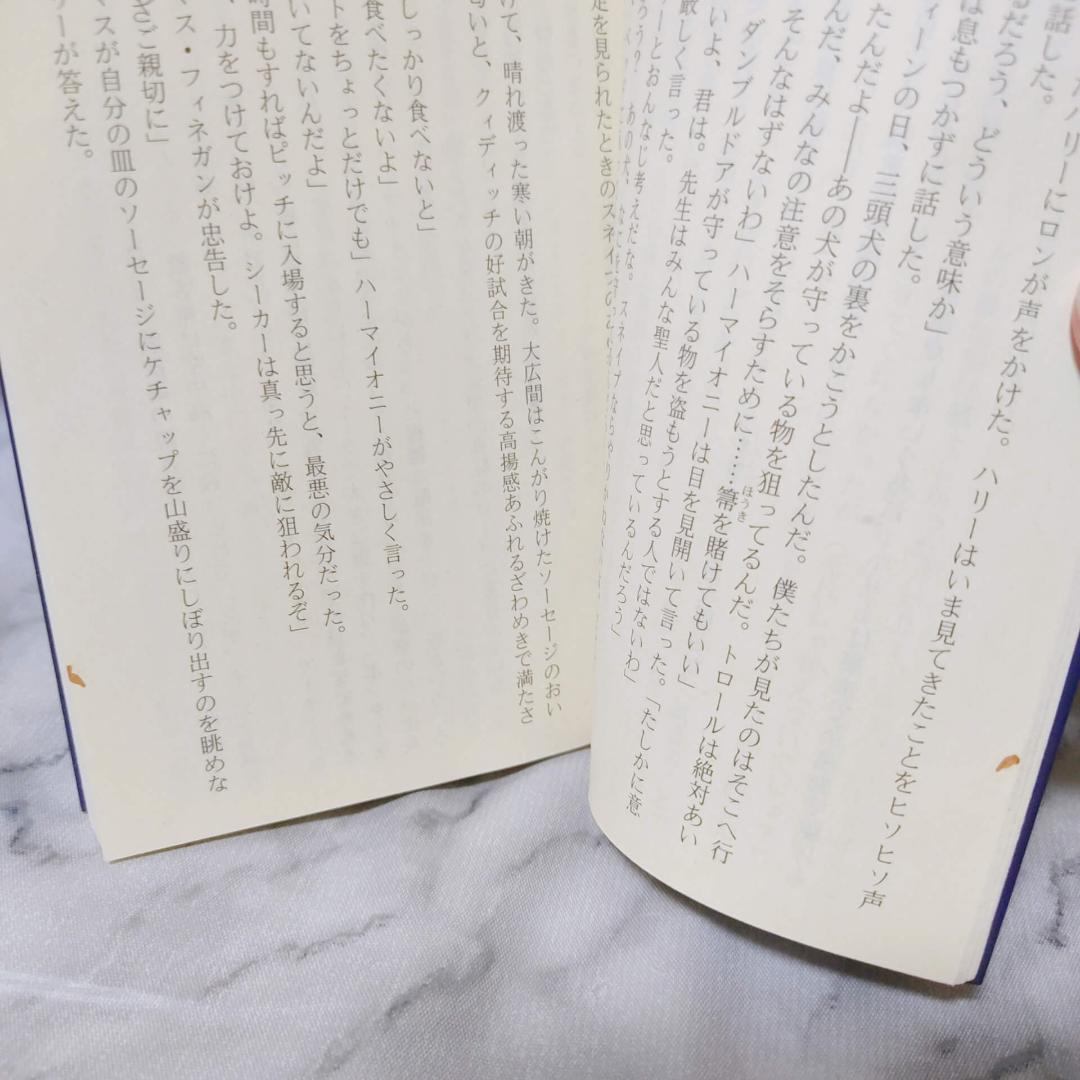 たハリーにロンが声をかけた。ハリーはいま見てきたことをヒソヒソ声
話した。
るだろう、どういう意味か」
は息もつかずに話した。
ィーンの日、三頭犬の裏をかこうとしたんだ。僕たちが見たのはそこへ行
たんだよ――あの犬が守っている物を狙ってるんだ。トロールは絶対あい
んだ、みんなの注意をそらすために……箒を賭けてもいい」
ほうき
そんなはずないわ」ハーマイオニーは目を見開いて言った。「たしかに意
ダンブルドアが守っている物を盗もうとする人ではないわ」
いよ、君は。先生はみんな聖人だと思っているんだろう」
厳しく言った。
ーとおんなじ考えだな。スネイプならやりか
あの犬、
足を見られたときのスネイ
けて、晴れ渡った寒い朝がきた。大広間はこんがり焼けたソーセージのおい
匂いと、クィディッチの好試合を期待する高揚感あふれるざわめきで満たさ
しっかり食べないと」
食べたくないよ」
トをちょっとだけでも」ハーマイオニーがやさしく言った。
いてないんだよ」
時間もすればピッチに入場すると思うと、最悪の気分だった。
、力をつけておけよ。シーカーは真っ先に敵に狙われるぞ」
マス・フィネガンが忠告した。
ざご親切に」
マスが自分の皿のソーセージにケチャップを山盛りにしぼり出すのを眺めな
リーが答えた。